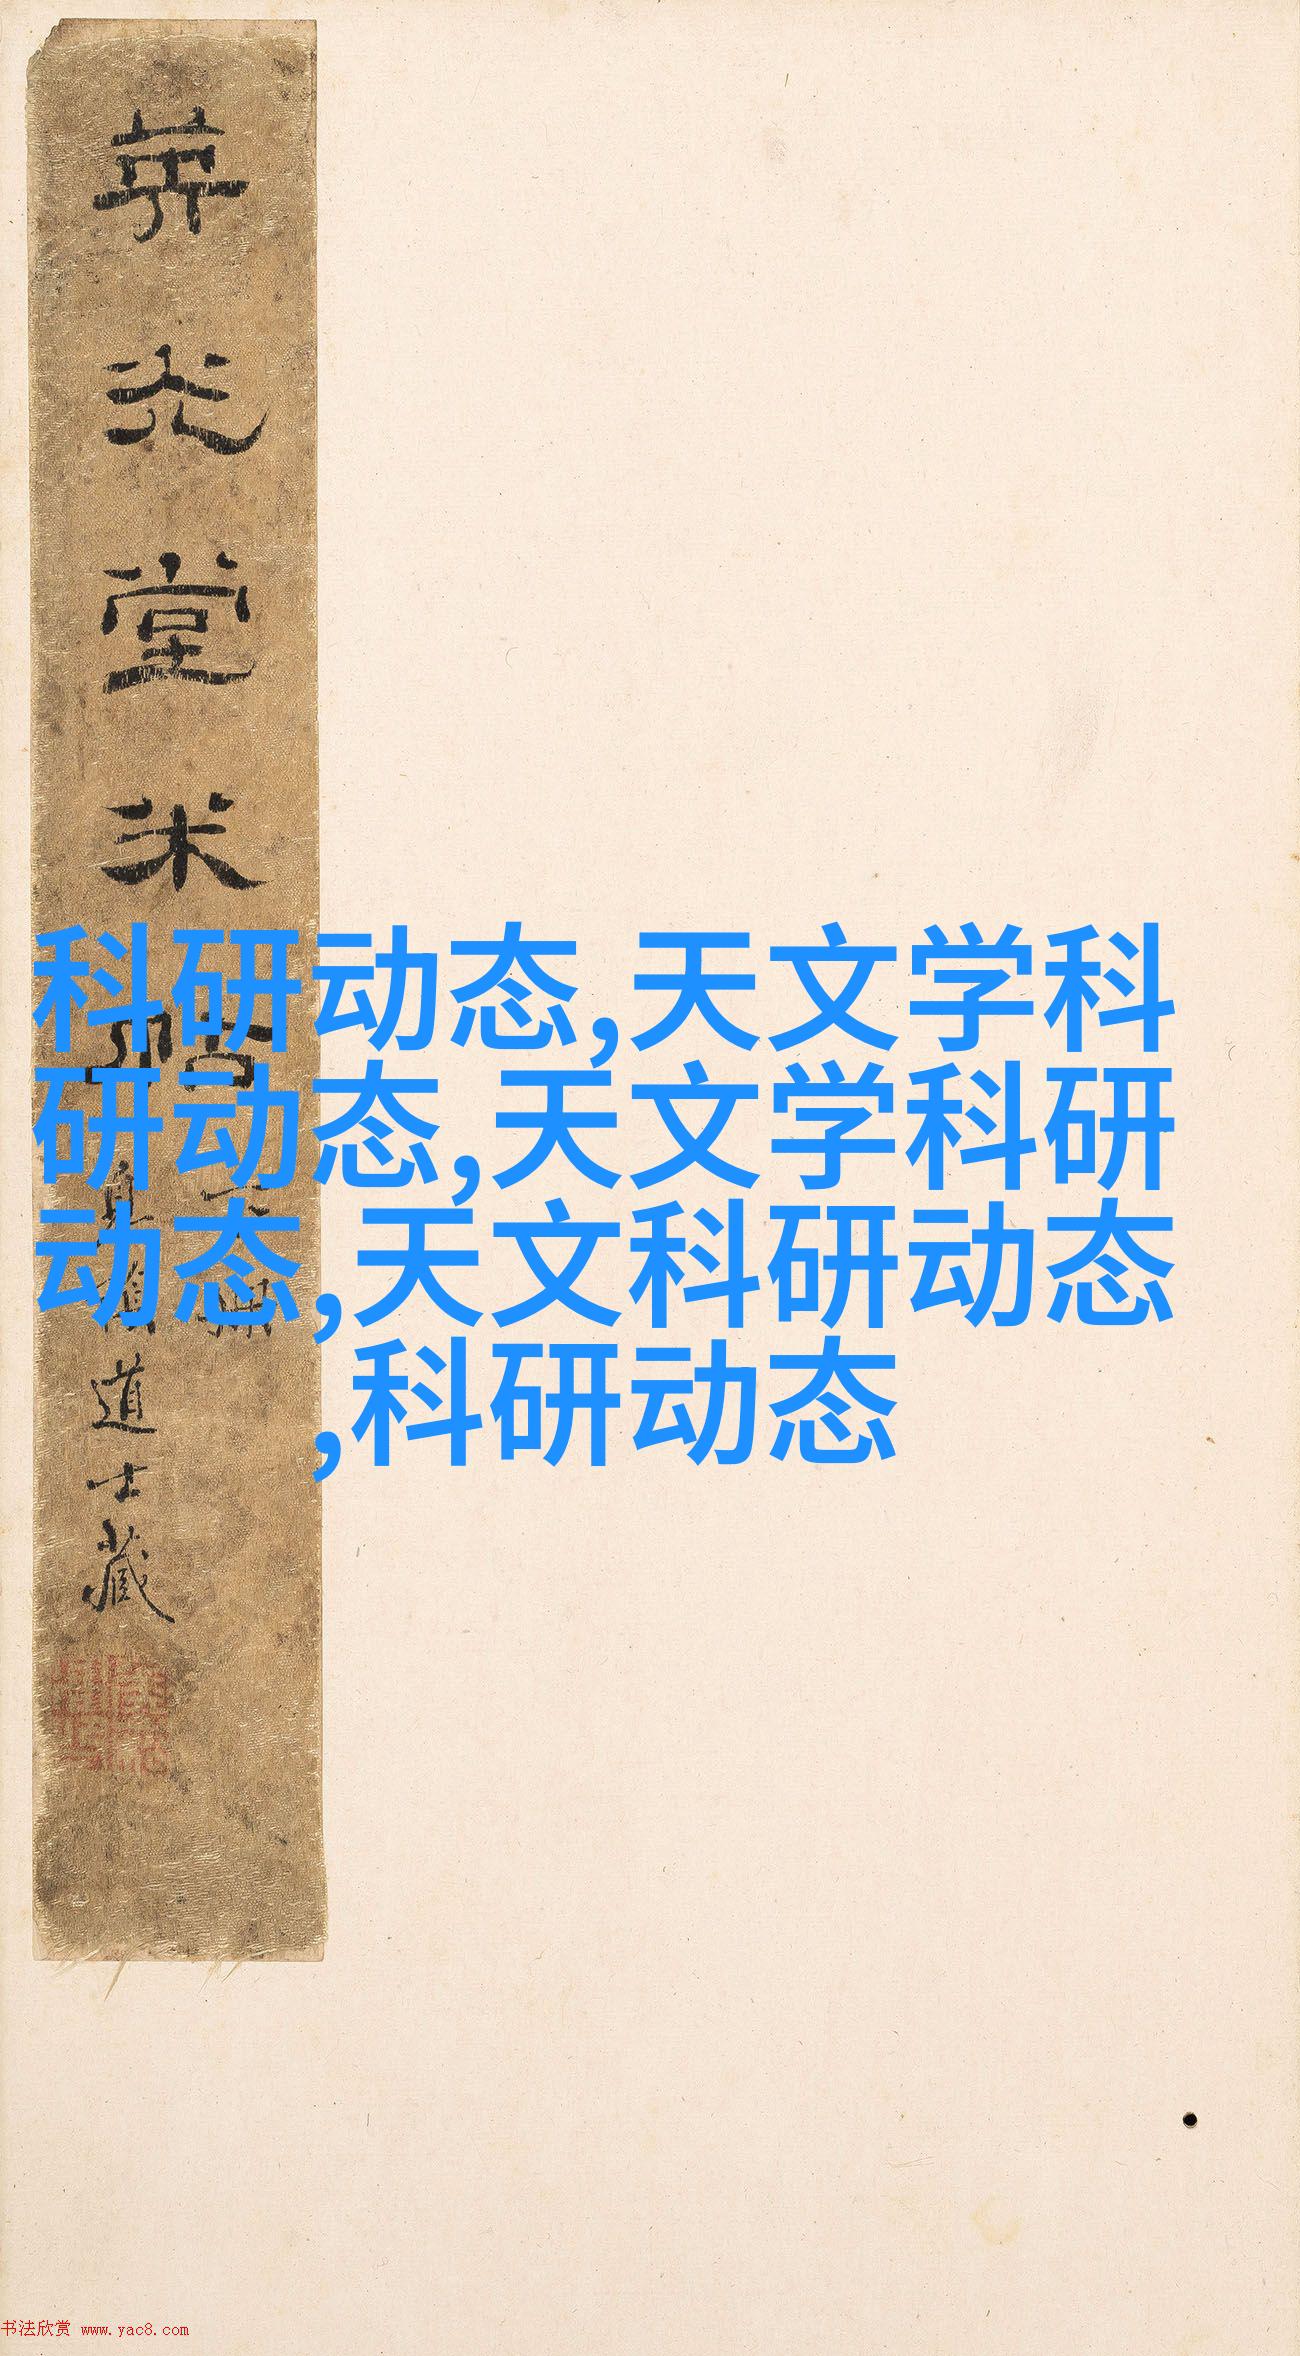 英光堂米
道士藏
科研动态,天文学科
研动态,天文学科研
动态,天文科研动态
,科研动态
书法欣赏 www.yac8.com